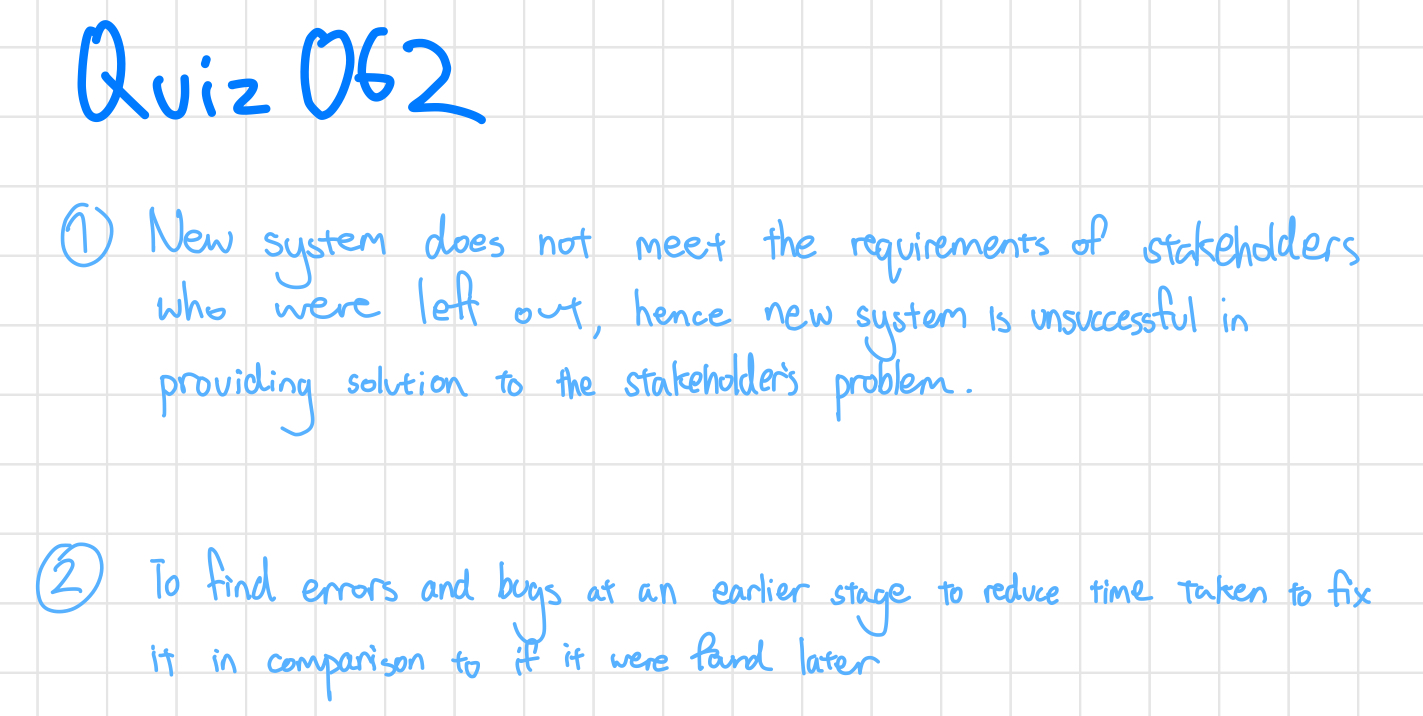 Quiz 062
① New system does not meet the requirements of stakeholders
who were left out, hence new system is unsuccessful in
providing solution to the stakeholder's problem.
② To find errors and bugs at an earlier stage to reduce time taken to fix
it in comparison to if it were found later